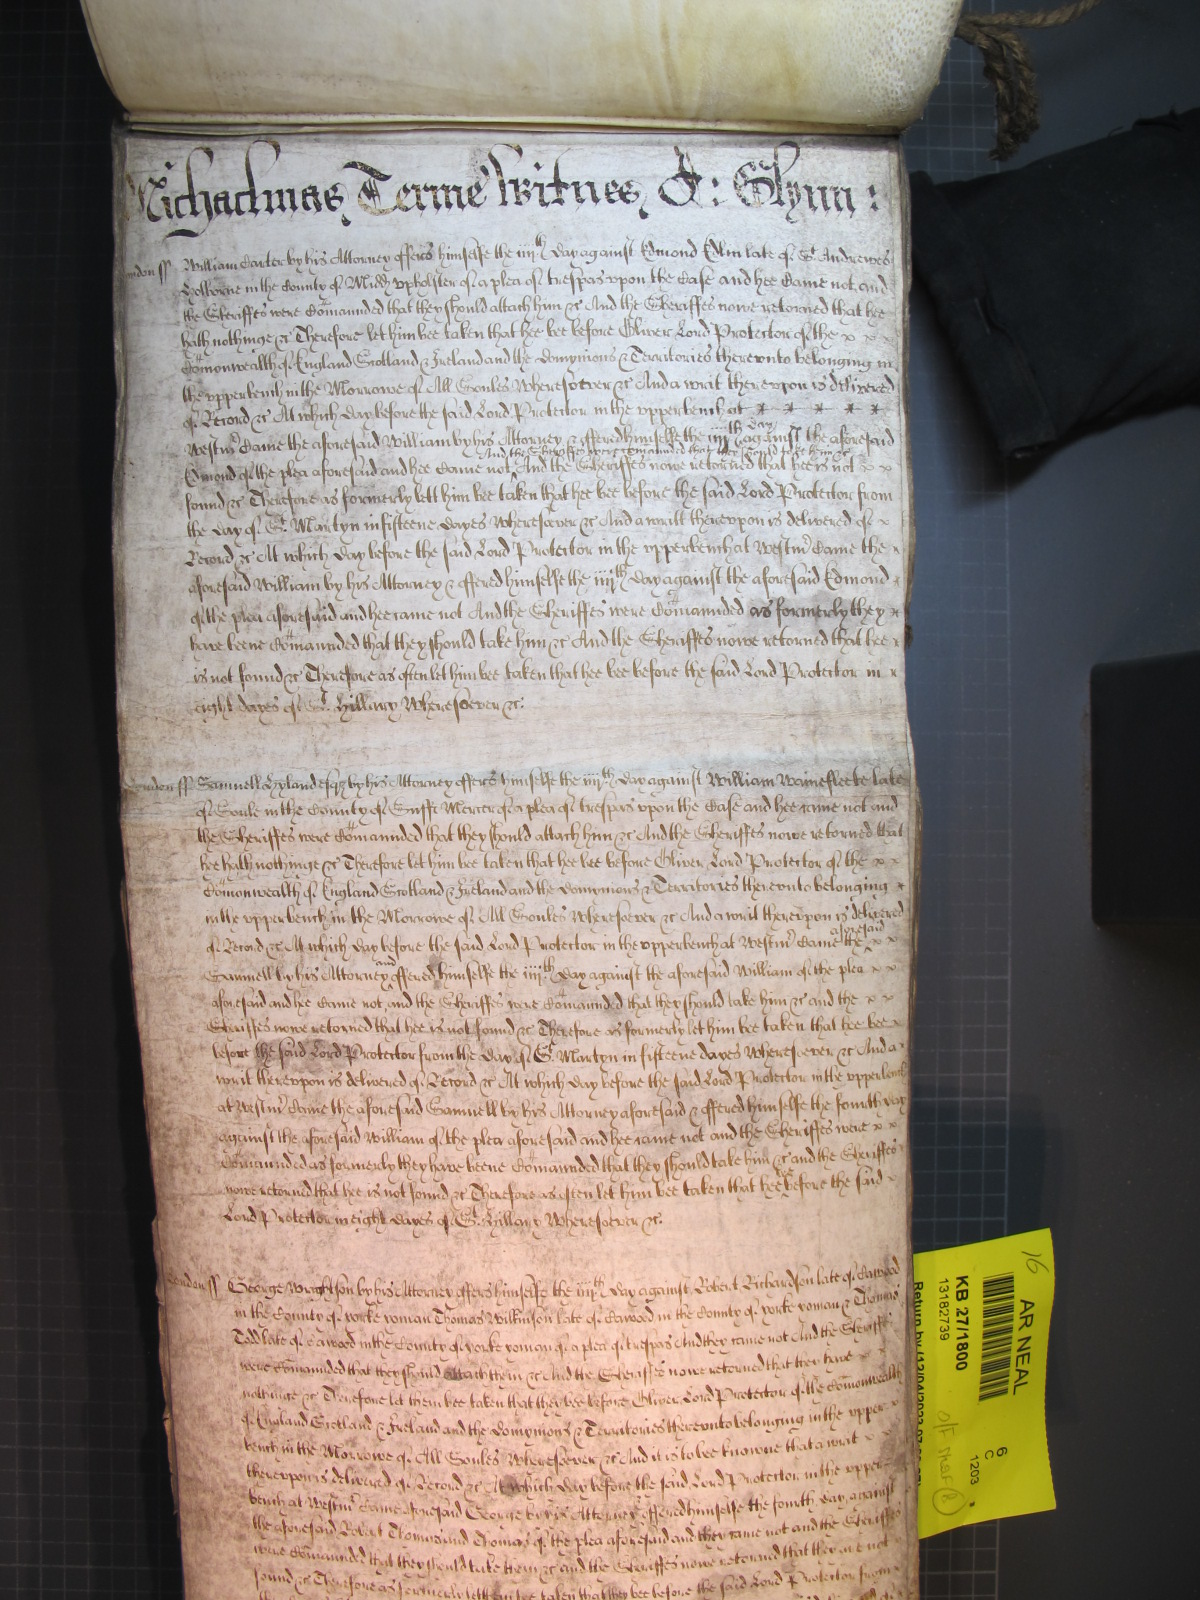 Michaelmas Terme Witnes J: Glynn:
London ss William Carter by his Attorney offers himselfe the iiijth day against Edmond Edlin late of St. Andrewes
Holborne in the County of Midd upholster of a plea of trespas upon the Case and hee Came not, and
the Sheriffes were Comaunded that they should attach him &c And the Sheriffes nowe retorned that hee
hath nothinge &c Therefore let him bee taken that hee bee before Oliver Lord Protector of the x x x
Comonwealth of England Scotland & Ireland and the Dominyons & Territories therevnto belonging in
the vpperbench in the Morrowe of All Soules Wheresoever &c And a writ therevpon is delivered
of Record &c At which day before the said Lord Protector in the vpperbench at x x x x x
Westmr Came the aforesaid William by his Attorney & offered himselfe the iiijth day against the aforesaid
And the Sheriffes were Comaunded that they should take him &c
Edmond of the plea aforesaid and hee Came not ^ And the Sheriffes nowe retorned that hee is not x x
found &c Therefore as formerly lett him bee taken that hee bee before the said Lord Protector from
the day of St. Martyn in fifteene dayes Wheresoever &c And a writt therevpon is delivered of x
Record &c At which day before the said Lord Protector in the vpperbench at Westmr Came the x
aforesaid William by his Attorney & offered himselfe the iiijth day against the aforesaid Edmond
of the plea aforesaid and hee came not And the Sheriffes were Comaunded as formerly they x
have beene Comaunded that they should take him &c And the Sheriffes nowe retorned that hee x
is not found &c Therefore as often let him bee taken that hee bee before the said Lord Protector in x
eight dayes of St. Hillary Wheresoever &c.
London ss Samuell Hyland esqr by his Attorney offers himselfe the iiijth day against William Wainefleete late
of Soule in the County of Suff Mercer of a plea of trespas vpon the Case and hee came not and
the Sheriffes were Comaunded that they should attach him &c And the Sheriffes nowe retorned that
hee hath nothinge &c Therefore let him bee taken that hee bee before Oliver Lord Protector of the x x
Comonwealth of England Scotland & Ireland and the Dominyons & Territories therevnto belonging x
in the vpperbench in the Morrowe of All Soules Wheresoever &c And a writ therevpon is delivered
aforesaid
of Record &c At which day before the said Lord Protector in the vpperbench at Westmr Came the ^ x x
Samuell by his Attorney ^and offered himselfe the iiijth day against the aforesaid William of the plea x x
aforesaid and hee Came not and the Sheriffes were Comaunded that they should take him &c and the x x
Sheriffes nowe retorned that hee is not found &c Therefore as formerly let him bee taken that hee bee x
before the said Lord Protector from the day of St. Martyn in fifteene dayes Wheresoever &c And a
writ therevpon is delivered of Record &c At which day before the said Lord Protector in the vpperbench
at Westmr Came the aforesaid Samuell by his Attorney aforesaid & offered himselfe the fourth day
against the aforesaid William of the plea aforesaid and hee came not and the Sheriffes were x x
Comaunded as formerly they have beene Comaunded that they should take him &c and the Sheriffes
nowe retorned that hee is not found &c Therefore as often let him bee taken that hee bee before the said x
Lord Protector in eight dayes of St. Hillary Wheresoever &c.
London ss George Wrightson by his Attorney offers himselfe the iiijth day against Robert Richardson late of Cawood
in the County of yorke yoman Thomas Wilkinson late of Cawood in the County of yorke yoman & Thomas
Todd late of Cawood in the County of yorke yoman of a plea of trespas And they came not And the Sheriffes
were Comaunded that they should attach them &c And the Sheriffes nowe retorned that they have x x
nothinge &c Therefore let them bee taken that they bee before Oliver Lord Protector of the Comonwealth
of England Scotland & Ireland and the Dominyons & Territories therevnto belonging in the vpper x
bench in the Morrowe of All Soules Wheresoever &c And it is to bee knowne that a writ x x
therevpon is delivered of Record &c At which day before the said Lord Protector in the vpper
bench at Westmr Came aforesaid George by his Attorney & offered himselfe the fourth day against
the aforesaid Robert Thomas and Thomas of the plea aforesaid and they came not and the Sheriffes
were Comaunded that they should take them &c and the Sheriffes nowe retorned that they are not x
found &c Therefore as formerly lett them bee taken that they bee before the said Lord Protector from
16
AR NEAL
KB 27/1800
13182739
6
C
1203
O/F
8